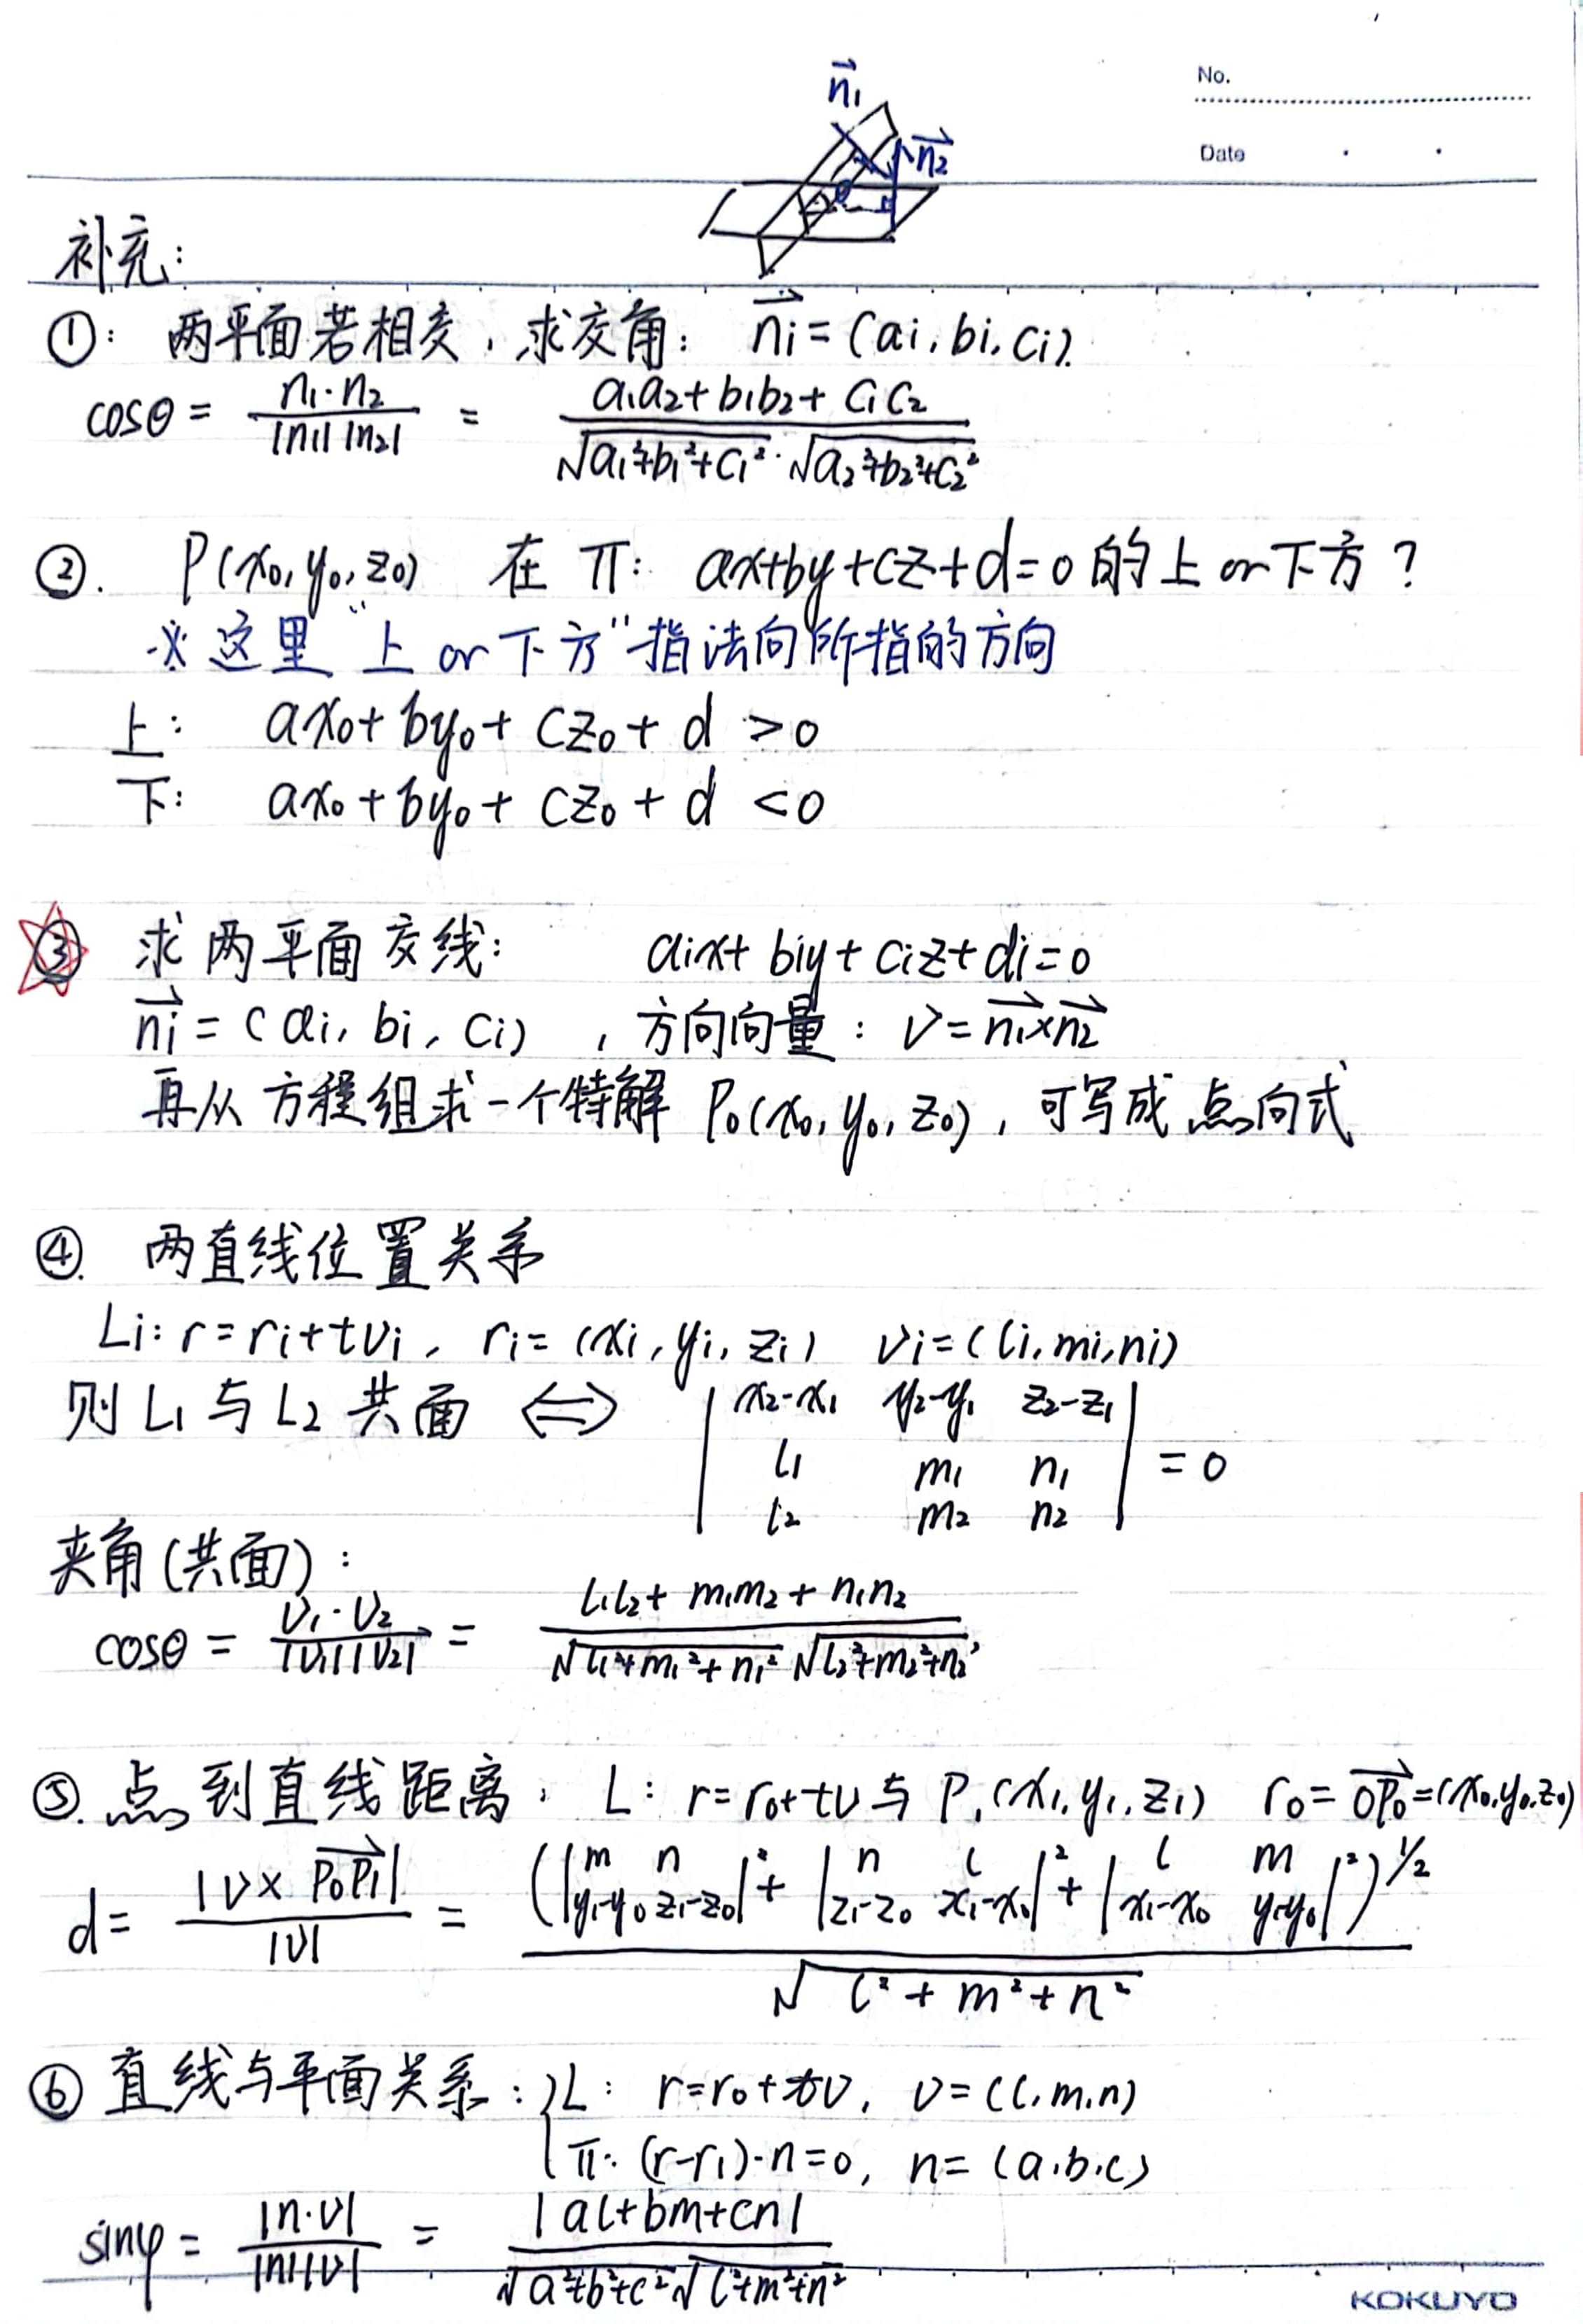 No.
Date
n⃗₁
n⃗₂
θ
补充:
①: 两平面若相交，求交角: n⃗i = (ai, bi, ci).
cosθ = n₁·n₂ / |n₁||n₂| = a₁a₂+b₁b₂+c₁c₂ / √a₁²+b₁²+c₁² · √a₂²+b₂²+c₂²
②. P(x₀, y₀, z₀) 在 π: ax+by+cz+d=0 的上 or 下方?
※ 这里 "上 or 下方" 指法向所指的方向
上: ax₀+by₀+cz₀+d >0
下: ax₀+by₀+cz₀+d <0
③ 求两平面交线: aix+biy+ciz+di=0
n⃗i = (ai, bi, ci) , 方向向量: v = n⃗₁×n⃗₂
再从方程组求一个特解 P₀(x₀, y₀, z₀), 可写成点向式
④. 两直线位置关系
Li: r=ri+tvi, ri=(xi, yi, zi) vi=(li, mi, ni)
则 L₁ 与 L₂ 共面 ⇔ | x₂-x₁ y₂-y₁ z₂-z₁ |
| l₁ m₁ n₁ | = 0
| l₂ m₂ n₂ |
夹角(共面):
cosθ = v₁·v₂ / |v₁||v₂| = l₁l₂+m₁m₂+n₁n₂ / √l₁²+m₁²+n₁² √l₂²+m₂²+n₂²
⑤. 点到直线距离, L: r=r₀+tv 与 P₁(x₁, y₁, z₁) r₀=OP₀⃗=(x₀,y₀,z₀)
d = |v×P₀P₁⃗| / |v| = (|m n; y₁-y₀ z₁-z₀|² + |n l; z₁-z₀ x₁-x₀|² + |l m; x₁-x₀ y₁-y₀|²)^1/2 / √l²+m²+n²
⑥ 直线与平面关系: { L: r=r₀+tv, v=(l,m,n)
π: (r-r₁)·n=0, n=(a,b,c)
sinφ = |n·v| / |n||v| = |al+bm+cn| / √a²+b²+c² √l²+m²+n²
KOKUYO